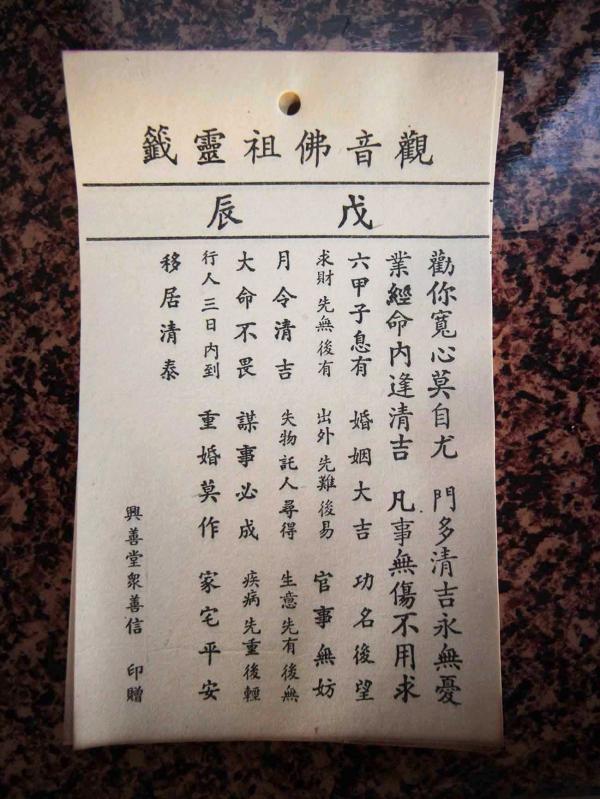 觀音佛祖靈籤
戊辰
勸你寬心莫自尤 門多清吉永無憂
業經命內逢清吉 凡事無傷不用求
六甲子息有 婚姻大吉 功名後望
求財先無後有 出外先難後易 官事無妨
月令清吉 失物託人尋得 生意先有後無
大命不畏 謀事必成 疾病先重後輕
行人三日內到 重婚莫作 家宅平安
移居清泰
興善堂眾善信 印贈